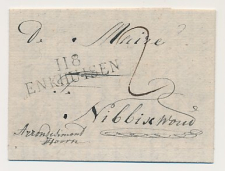 De Maire
118
ENKHUISEN
2
Nibbixwoud
Arrondissement
Hoorn